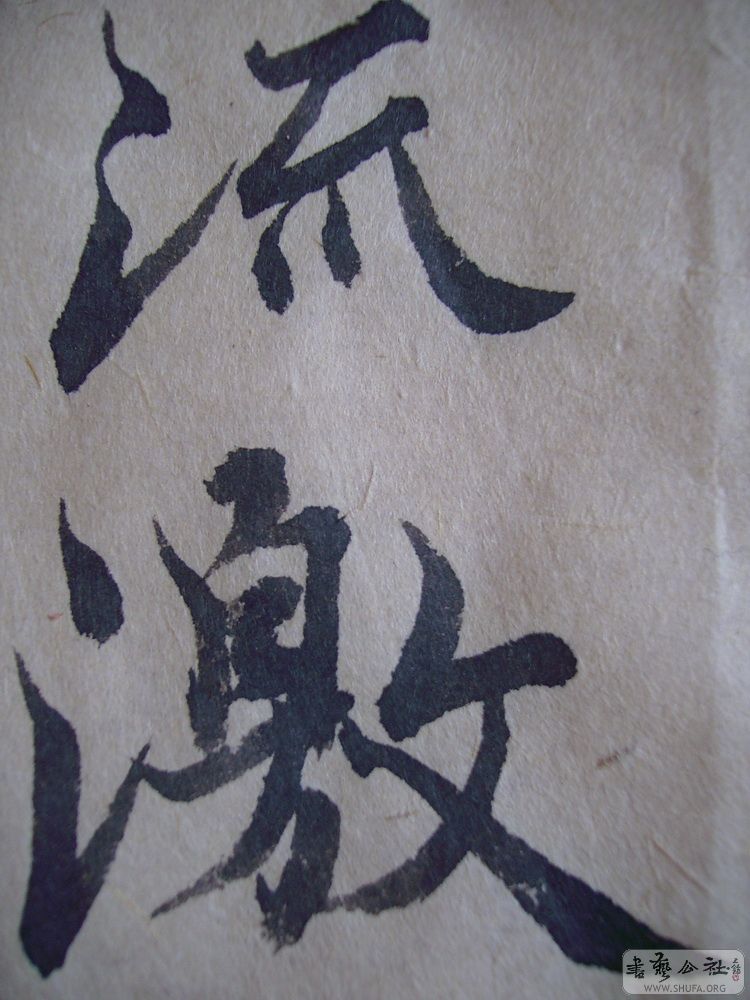 流
激
書藝公社
WWW.SHUFA.ORG